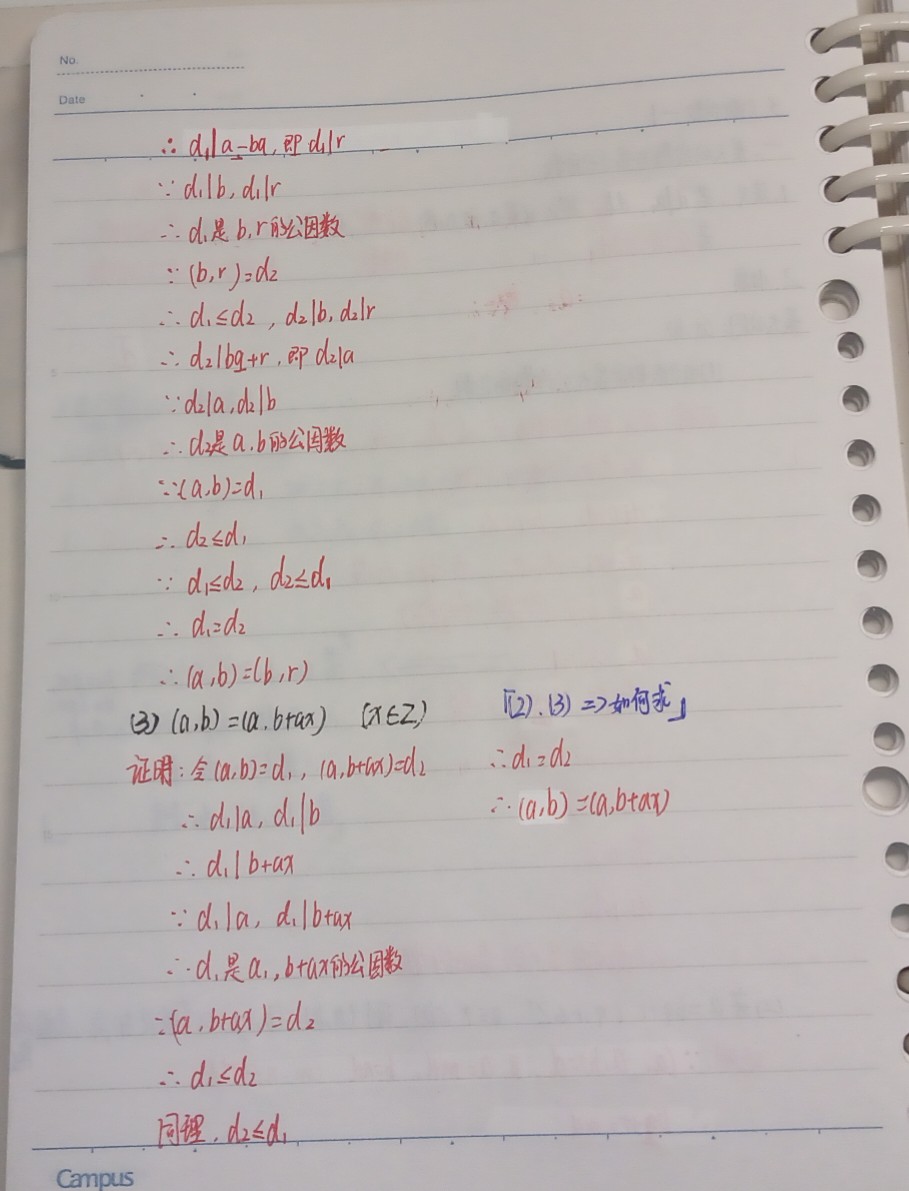 No.
Date
∴ d₁|a-bq, 即 d₁|r
∵ d₁|b, d₁|r
∴ d₁是 b,r的公因数
∵ (b,r)=d₂
∴ d₁≤d₂ , d₂|b, d₂|r
∴ d₂|bq+r, 即 d₂|a
∵ d₂|a, d₂|b
∴ d₂是 a,b的公因数
∵(a,b)=d₁
∴ d₂≤d₁
∵ d₁≤d₂ , d₂≤d₁
∴ d₁=d₂
∴(a,b)=(b,r)
(3) (a,b)=(a,b+ax) (x∈Z)
「(2).(3) => 如何求」
证明: 令(a,b)=d₁, (a,b+ax)=d₂
∴ d₁|a, d₁|b
∴ d₁|b+ax
∵ d₁|a, d₁|b+ax
∴ d₁是a,,b+ax的公因数
∵(a,b+ax)=d₂
∴ d₁≤d₂
同理, d₂≤d₁
∴d₁=d₂
∴(a,b)=(a,b+ax)
Campus